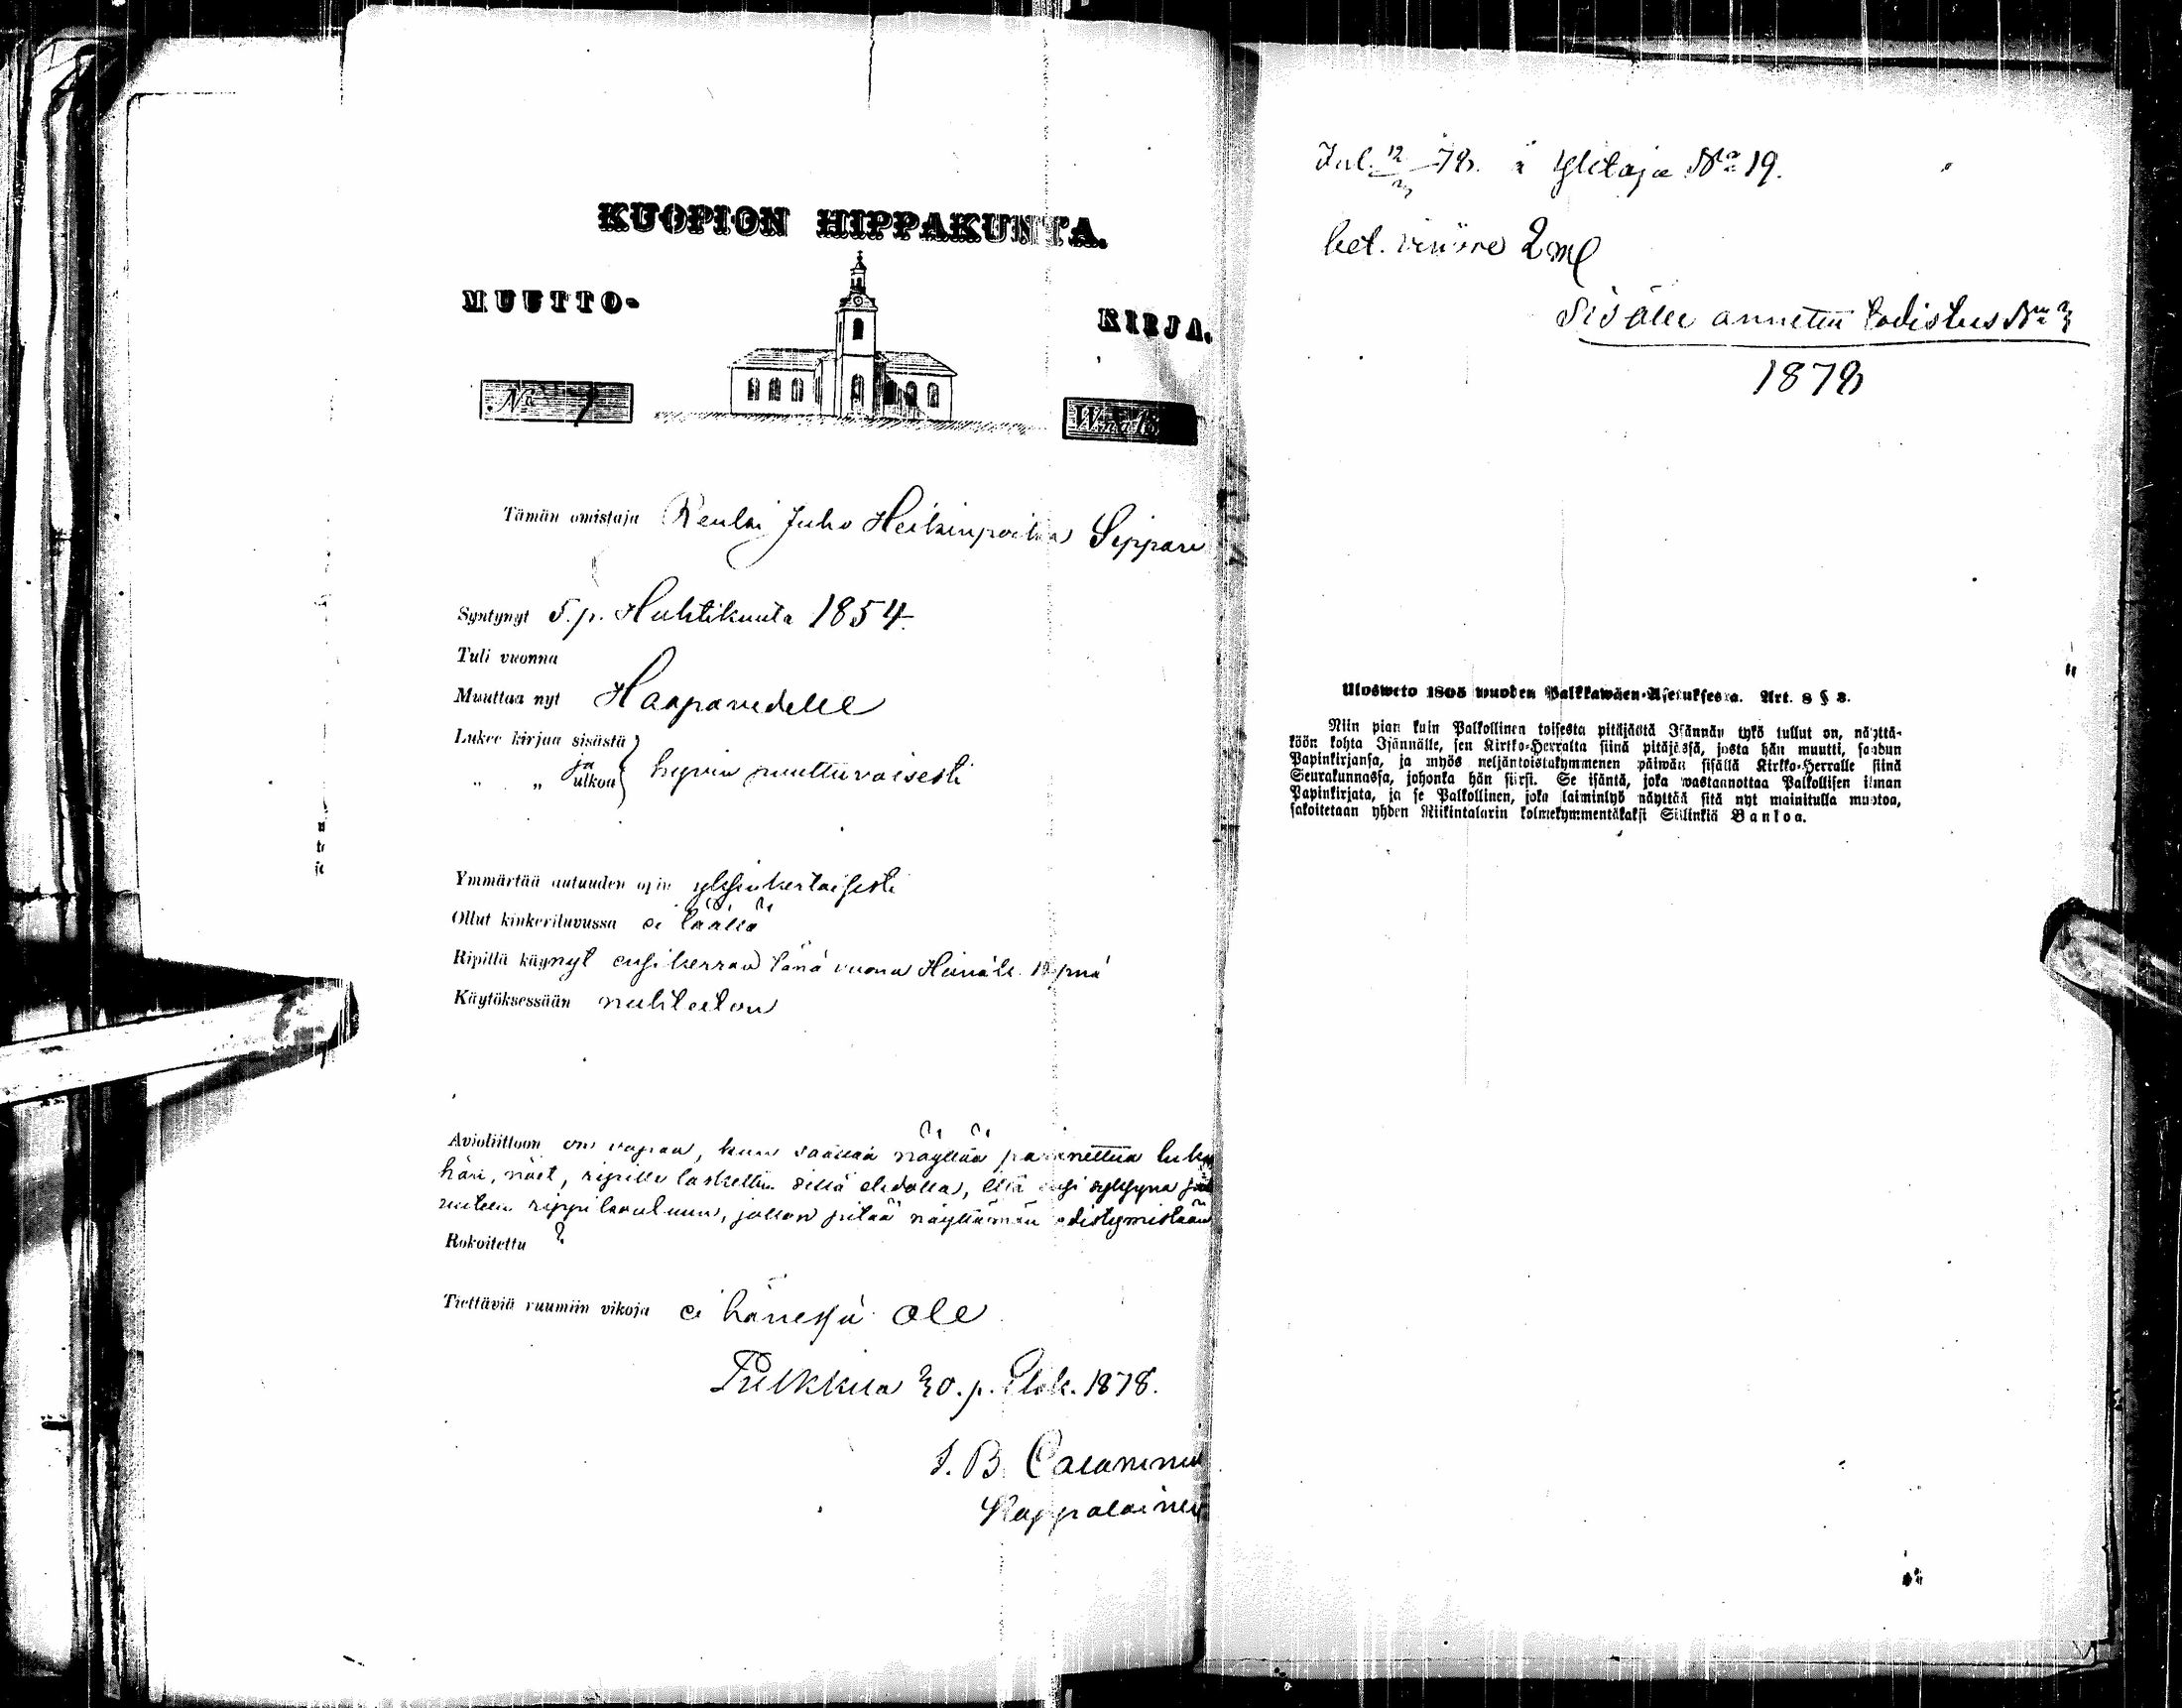 KUOPION HIPPAKUNTA.
MUUTTO-
KIRJA.
No 1
Wna 18
Tämän omistaja Renki Juho Heikinpoika Sippari
Syntynyt 5. p. Huhtikuuta 1854.
Tuli vuonna
Muuttaa nyt Haapavedelle
Lukee kirjaa sisästä
ja
„ „ ulkoa hyvin puuttuvaisesti
Ymmärtää autuuden opin yksinkertaisesti
Ollut kinkeriluvussa ei täällä
Ripillä käynyt ensikerran tänä vuonna Heinäk. pnä
Käytöksessään nuhteeton
Avioliittoon on vapaa, kun saattaa näyttää parannettua luku
hän, näet, ripille laskettiin sillä ehdolla, että ensi syksynä
rippikouluun, jolloin pitää näyttämän edistymistään
Rokoitettu ?
Tiettäviä ruumiin vikoja ei hänessä ole
Pulkkila 30. p. Elok. 1878.
J. B. Calamnius
Kappalainen
Jul. 12 78. Ylitaja No 19.
bet. 2
Sisälle annettu todistus No 3
1878
Ulosweto 1805 wuoden Palkkawäen-Asetuksesta. Art. 8 § 3.
Niin pian kuin Palkollinen toisesta pitäjästä Isännän tykö tullut on, näyttä-
köön kohta Isännälle, sen Kirkko-Herralta siinä pitäjässä, josta hän muutti, saadun
Papinkirjansa, ja myös neljäntoistakymmenen päiwän sisällä Kirkko-Herralle siinä
Seurakunnassa, johonka hän siirsi. Se isäntä, joka wastaanottaa Palkollisen ilman
Papinkirjata, ja se Palkollinen, joka laiminlyö näyttää sitä nyt mainitulla muotoa,
sakoitetaan yhden Riikintalarin kolmekymmentäkaksi Skilinkiä Bankoa.